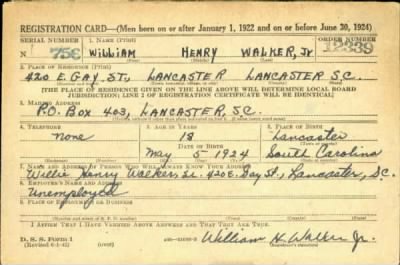 REGISTRATION CARD—(Men born on or after January 1, 1922 and on or before June 30, 1924)
SERIAL NUMBER 1. NAME (Print) ORDER NUMBER
N 756 WILLIAM HENRY WALKER, Jr 12339
(First) (Middle) (Last)
2. PLACE OF RESIDENCE (Print)
420 E. GAY ST., LANCASTER LANCASTER S.C.
[THE PLACE OF RESIDENCE GIVEN ON THE LINE ABOVE WILL DETERMINE LOCAL BOARD
JURISDICTION; LINE 2 OF REGISTRATION CERTIFICATE WILL BE IDENTICAL]
3. MAILING ADDRESS
P.O. BOX 403, LANCASTER, S.C.
4. TELEPHONE 5. AGE IN YEARS 6. PLACE OF BIRTH
none 18 Lancaster
DATE OF BIRTH
May 5 1924 South Carolina
7. NAME AND ADDRESS OF PERSON WHO WILL ALWAYS KNOW YOUR ADDRESS
Willie Henry Walker Sr. 420 E. Gay St., Lancaster, S.C.
8. EMPLOYER'S NAME AND ADDRESS
Unemployed
9. PLACE OF EMPLOYMENT OR BUSINESS
I AFFIRM THAT I HAVE VERIFIED ABOVE ANSWERS AND THAT THEY ARE TRUE.
D. S. S. Form 1
(Revised 6-9-42) (over) William H. Walker Jr.
(Registrant's signature)